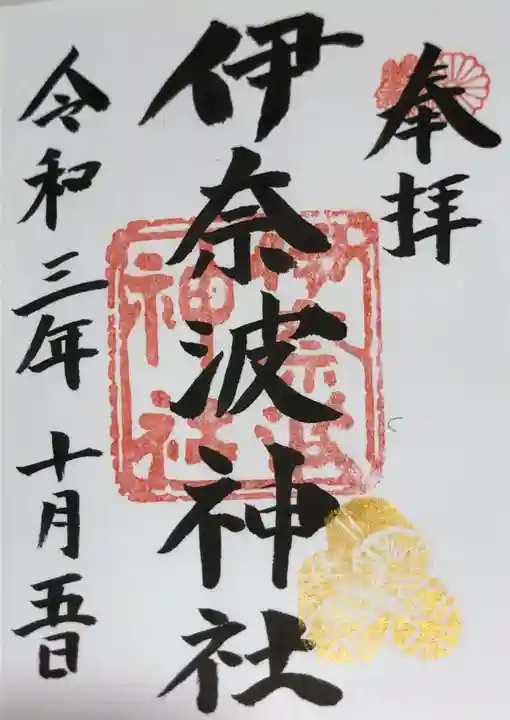 奉拝
伊奈波神社
伊奈波
神社
令和三年十月五日